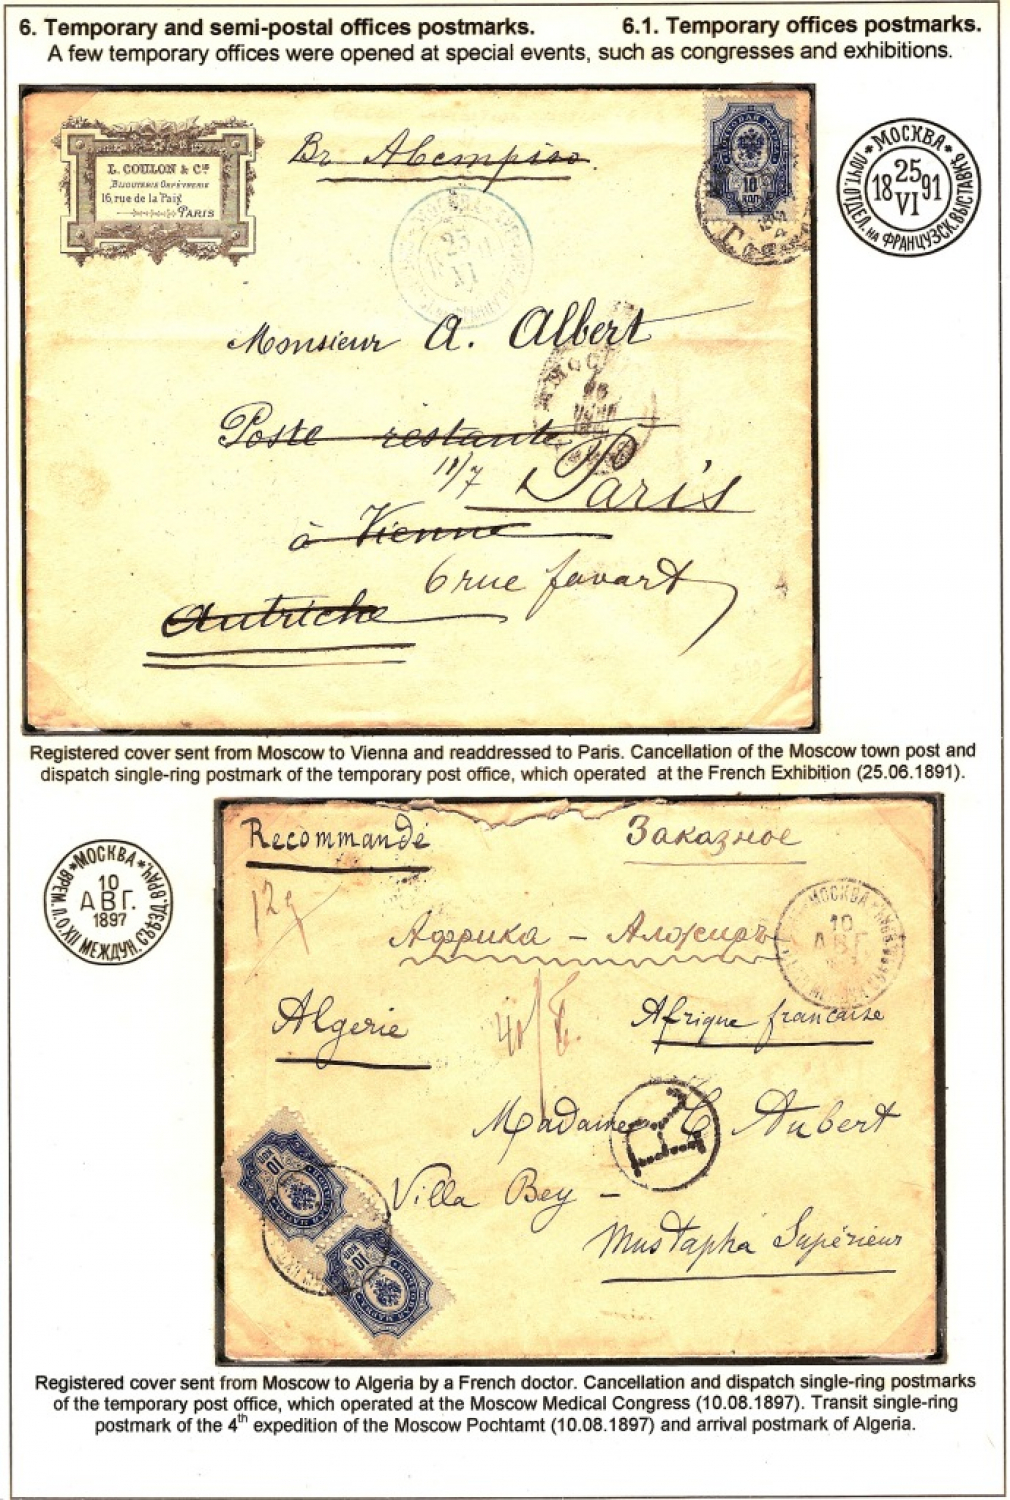 6. Temporary and semi-postal offices postmarks. 6.1. Temporary offices postmarks.
A few temporary offices were opened at special events, such as congresses and exhibitions.
L. COULON & Cie
BIJOUTERIE ORFÈVRERIE
16, rue de la Paix
PARIS
10
КОП
*МОСКВА*
25
18 91
VI
ПОЧТ. ОТДЕЛ. НА ФРАНЦУЗСК. ВЫСТАВКѢ
МОСКВА
25
VI
Monsieur A. Albert
Poste restante
11/7 Paris
à Vienne
6 rue favart
Autriche
Registered cover sent from Moscow to Vienna and readdressed to Paris. Cancellation of the Moscow town post and
dispatch single-ring postmark of the temporary post office, which operated at the French Exhibition (25.06.1891).
*МОСКВА*
10
АВГ.
1897
ВРЕМ. П.О. XII МЕЖДУН. СЪѢЗД. ВРАЧ.
Recommandé Заказное
МОСКВА
10
АВГ.
Африка – Алжиръ
Algerie Afrique française
Madame C Aubert
T
Villa Bey –
Mustapha Supérieur
10
КОП
10
КОП
Registered cover sent from Moscow to Algeria by a French doctor. Cancellation and dispatch single-ring postmarks
of the temporary post office, which operated at the Moscow Medical Congress (10.08.1897). Transit single-ring
postmark of the 4th expedition of the Moscow Pochtamt (10.08.1897) and arrival postmark of Algeria.